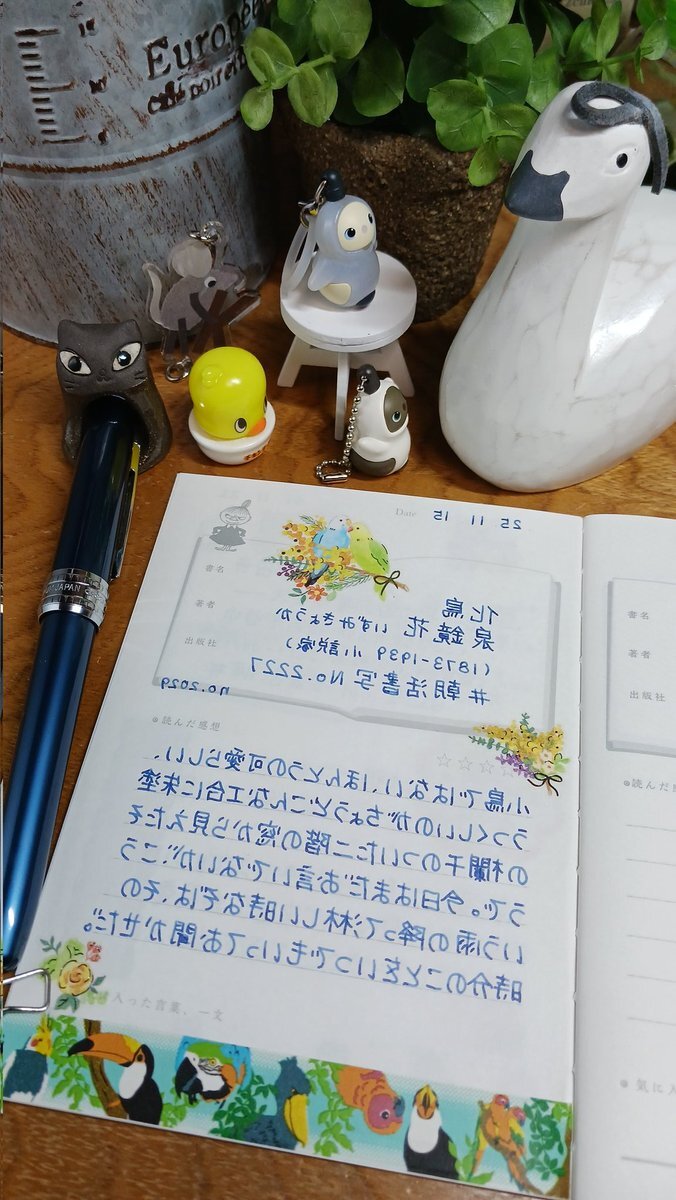 E
Europée
café noir
Date 25 11 15
書名
化鳥
著者
泉 鏡花 いずみきょうか
(1873-1939 小説家)
出版社
#朝活書写 No.2227
no.2029
読んだ感想
☆☆☆☆
小鳥ではない、ほんとうの可愛らしい、
うつくしいのがちょうどこんな工合に朱塗
の欄干のついた二階の窓から見えたそ
うで。今日はまだお言いでないが、こう
いう雨の降って淋しい時なぞは、その
時分のことをいつでもいっておきかせだ。
入った言葉、一文
書名
著者
出版社
読んだ感
気に入
JAPAN